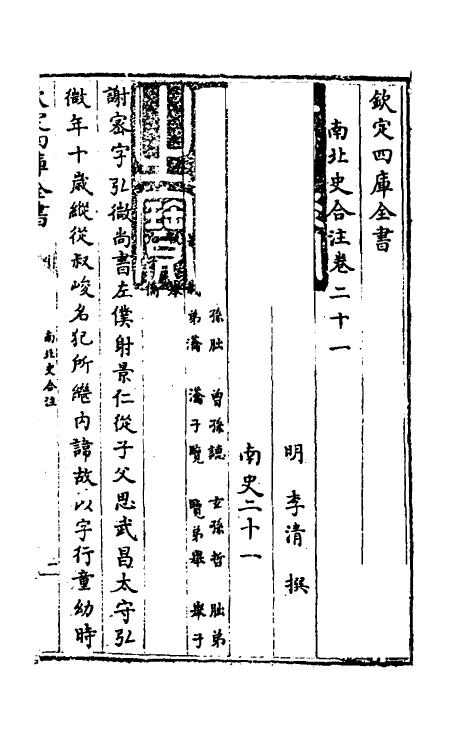 欽定四庫全書
南北史合注卷二十一
明 李清 撰
南史二十一
孫朏 曾孫譓 玄孫哲 朏弟
弟瀹 瀹子覽 覽弟舉 舉子
謝密字弘微尚書左僕射景仁從子父思武昌太守弘
微年十歲繼從叔峻名犯所繼内諱故以字行童幼時
欽定四庫全書
南北史合注